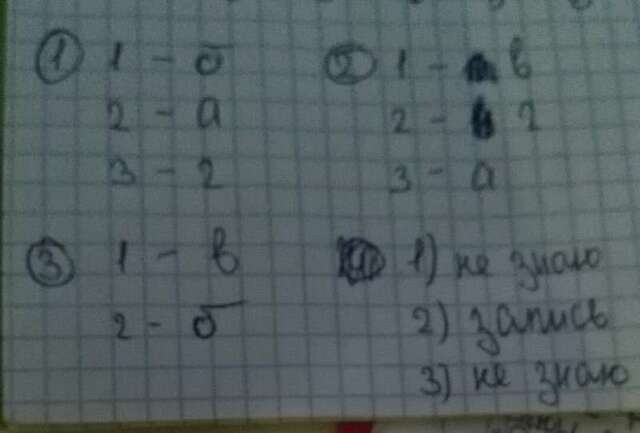 ① 1 - б
2 - а
3 - г
② 1 - в
2 - г
3 - а
③ 1 - в
2 - б
④ 1) не знаю
2) запись
3) не знаю